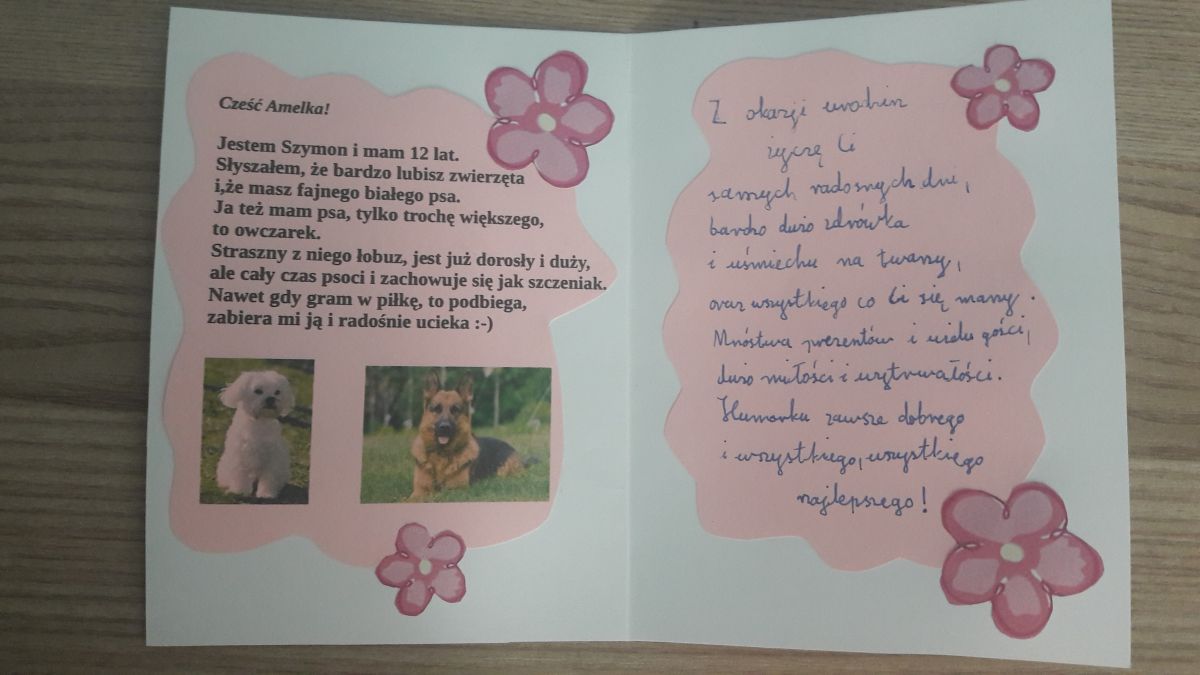 Cześć Amelka!
Jestem Szymon i mam 12 lat.
Słyszałem, że bardzo lubisz zwierzęta
i,że masz fajnego białego psa.
Ja też mam psa, tylko trochę większego,
to owczarek.
Straszny z niego łobuz, jest już dorosły i duży,
ale cały czas psoci i zachowuje się jak szczeniak.
Nawet gdy gram w piłkę, to podbiega,
zabiera mi ją i radośnie ucieka :-)
Z okazji urodzin
życzę Ci
samych radosnych dni,
bardzo dużo zdrówka
i uśmiechu na twarzy,
oraz wszystkiego co Ci się marzy.
Mnóstwa prezentów i wielu gości,
dużo miłości i wytrwałości.
Humorku zawsze dobrego
i wszystkiego, wszystkiego
najlepszego!